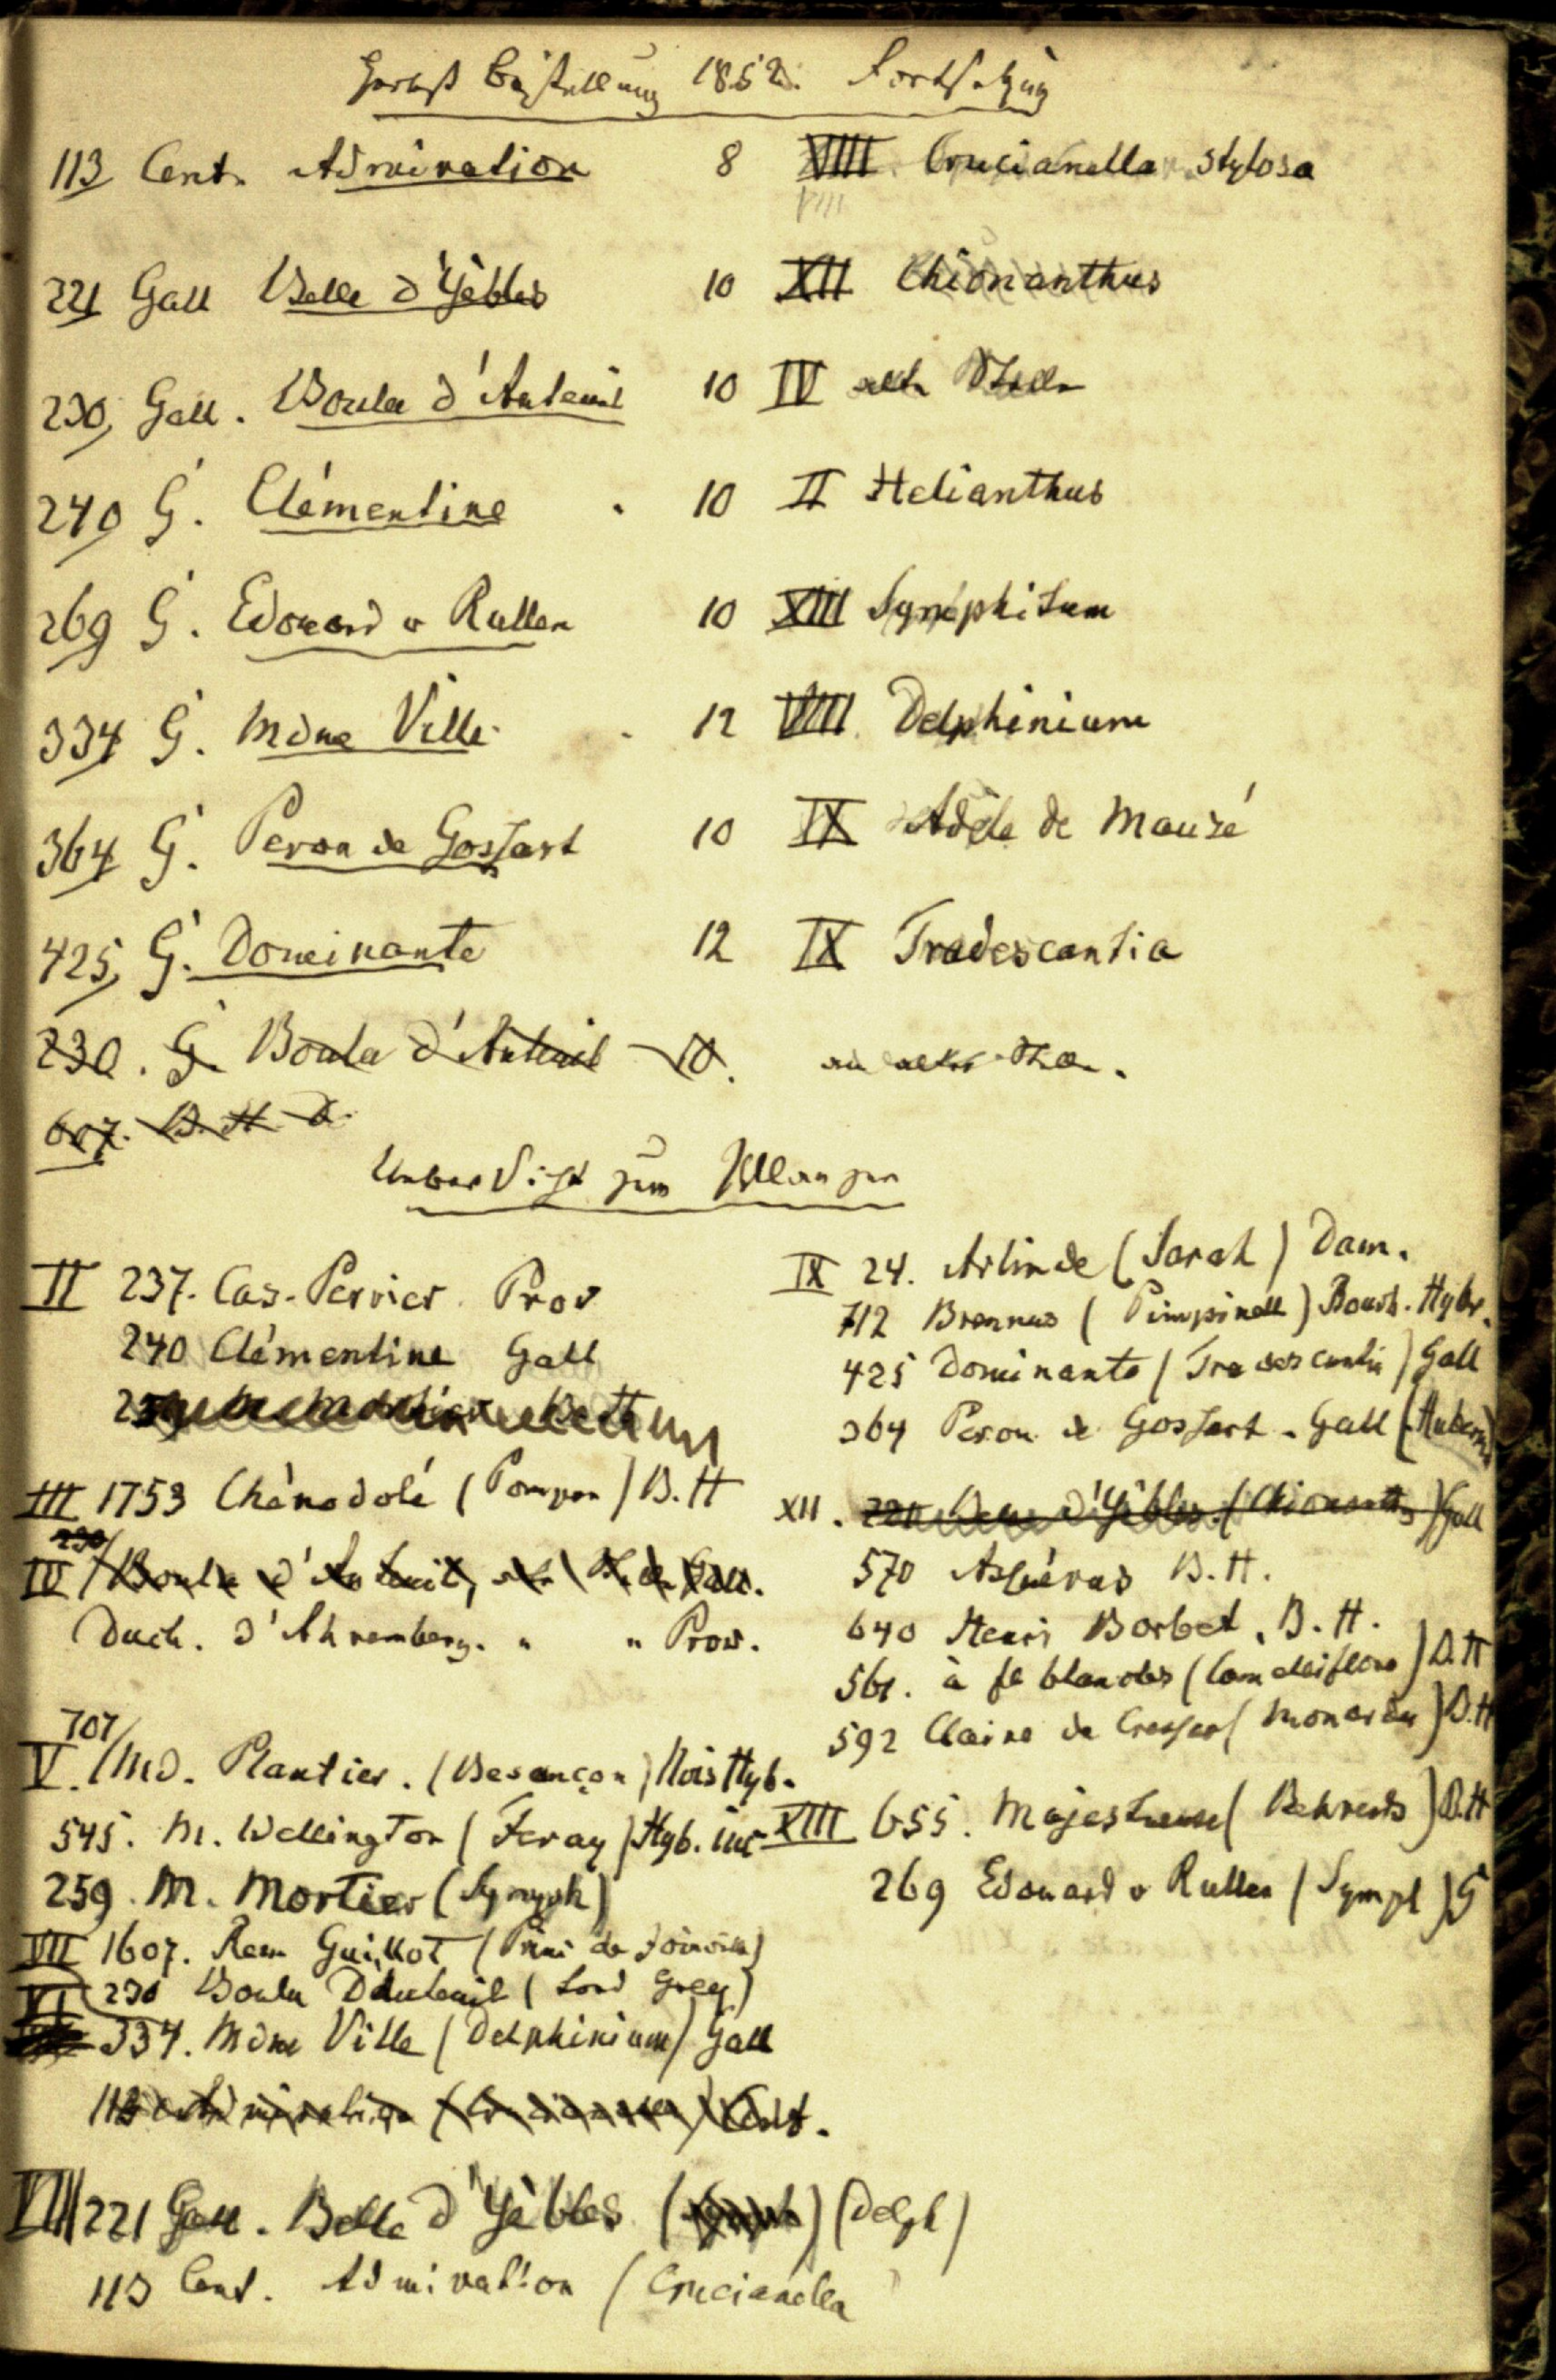 Herbst Bestellung 1852. Fortsetzung
113 Cent. Admiration 8 VIIII Crucianella stylosa
VIII
221 Gall Belle d'Yèbles 10 XII Chionanthus
230, Gall. Boula d'Auteuil 10 IV alte Stelle
240 G. Clémentine 10 II Helianthus
269 G. Edouard v Rullen 10 XIII Symphitum
334 G. Mdme Ville 12 VIIII Delphinium
364 G. Peron de Gossart 10 IX Adèle de Mauzé
425, G. Dominante 12 IX Tradescantia
230. G. Boula d'Auteuil 10. an alter Stelle.
607. B. H
Uebersicht zum Pflanzen
II 237. Cas. Perrier Prov
240 Clémentine Gall
III 1753 Chènedolé (Pompon) B. H
230/
IV Boula d'Auteuil, alte Stelle Gall.
Duch. d'Ahremberg. " " Prov.
707/
V. Md. Plantier. (Besançon) Nois Hyb.
545. M. Wellington (Feray) Hyb. inc
259. M. Mortier (Symph)
VII 1607. Rem Guillot (Prini de Joinville)
VI 230 Boula Dáuteuil (Lord Grey)
334. Mdme Ville (Delphinium) Gall
113 Admiration (Crucianella) Cent.
VIII 221 Gall. Belle d'Yèbles (Delph)
113 Cent. Admiration (Crucianella
IX 24. Arlinde (Sarah) Dam.
712 Brennus (Pimpinell) Bourb. Hybr.
425 Dominante (Tradescantia) Gall
364 Peron de Gossart. Gall
XII. 221 Belle d'Yèbles (Chionanth) Gall
570 Asfuéras B. H.
640 Henri Borbet, B. H.
561. à fl blanches (Camelliiflora) B. H
592 Claire de (Monarda) B. H
XIII 655. Majestueuse (Behrends) B. H
269 Edouard v Rullen (Symph) G